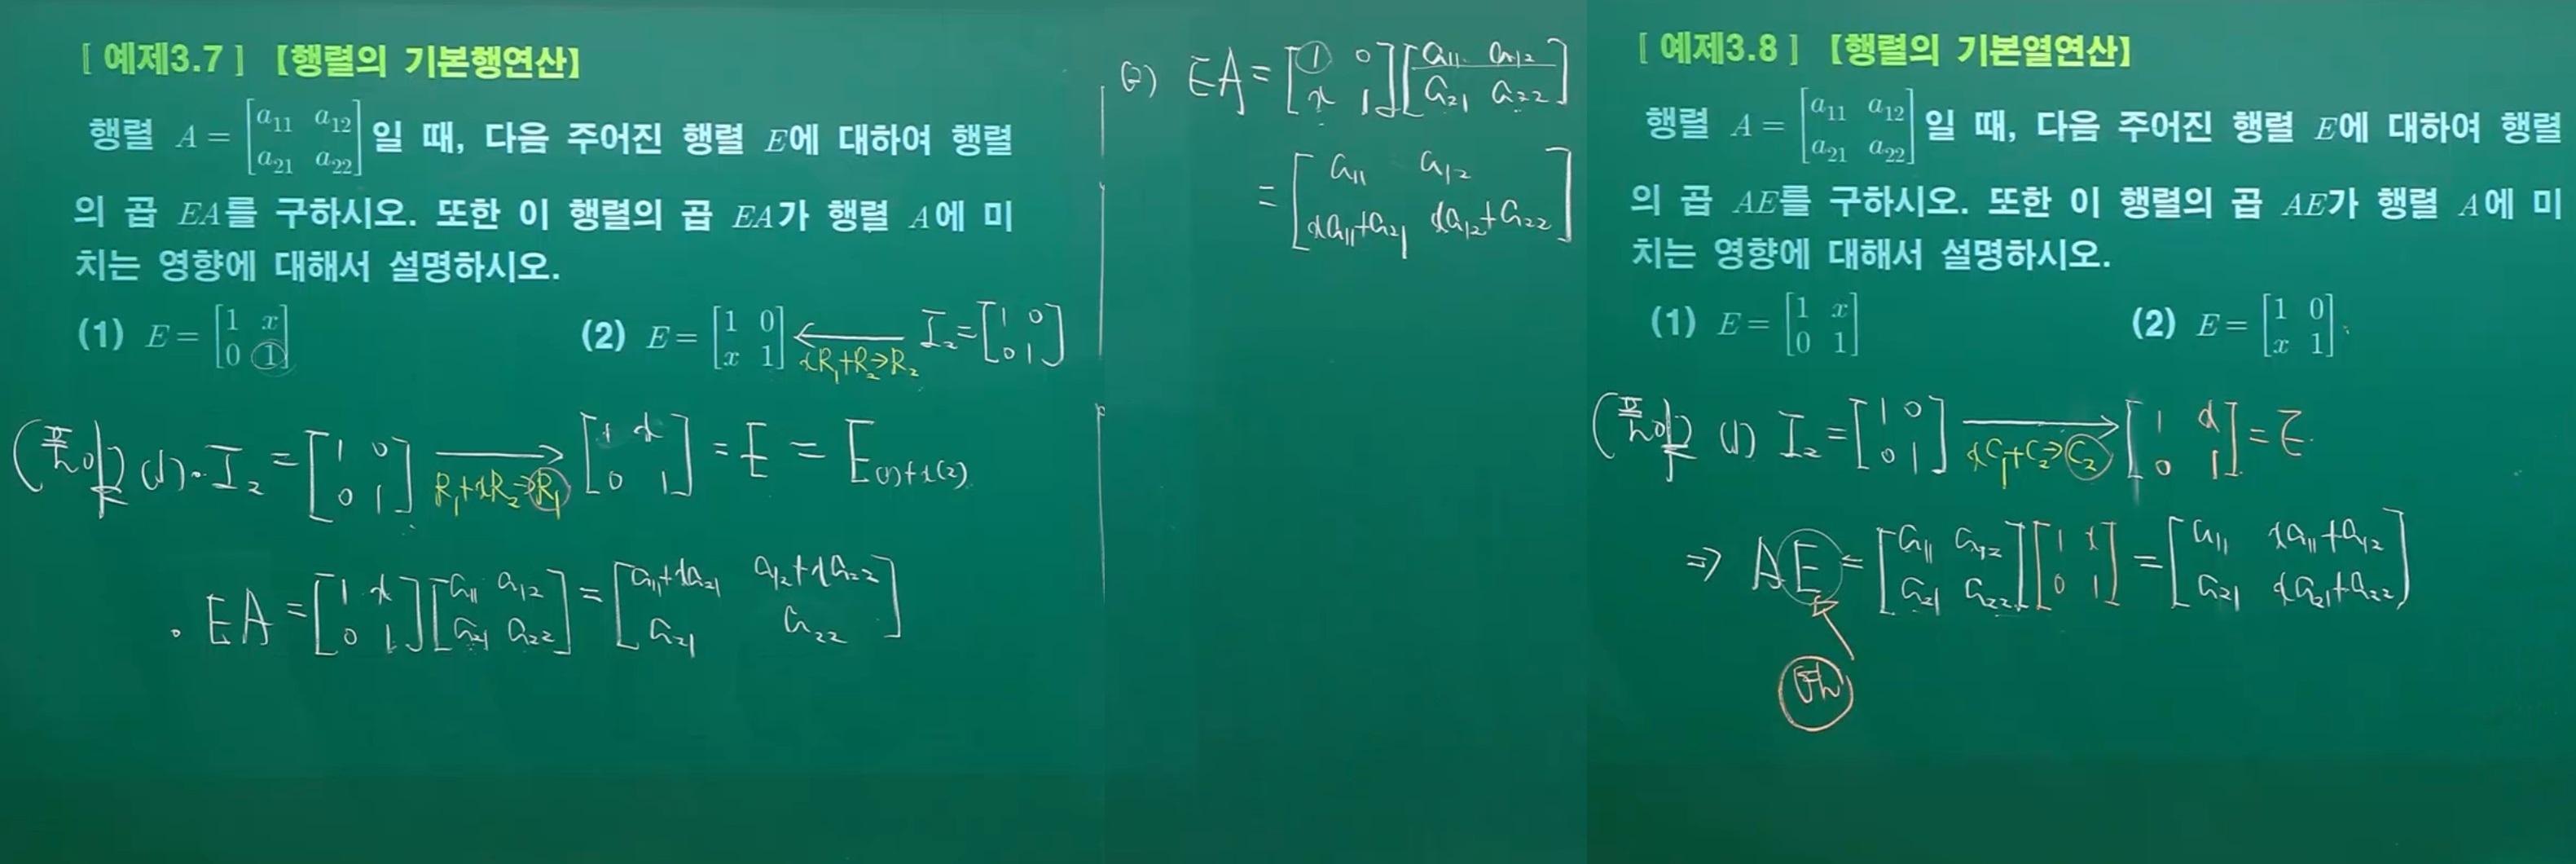 [ 예제3.7 ] 【행렬의 기본행연산】
행렬 A = [a₁₁ a₁₂; a₂₁ a₂₂] 일 때, 다음 주어진 행렬 E에 대하여 행렬
의 곱 EA를 구하시오. 또한 이 행렬의 곱 EA가 행렬 A에 미
치는 영향에 대해서 설명하시오.
(1) E = [1 x; 0 1] (2) E = [1 0; x 1] ← xR₁+R₂→R₂ I₂ = [1 0; 0 1]
(풀이) (1) · I₂ = [1 0; 0 1] → R₁+xR₂→R₁ [1 x; 0 1] = E = E₍₁₎₊ₓ₍₂₎
· EA = [1 x; 0 1] [a₁₁ a₁₂; a₂₁ a₂₂] = [a₁₁+xa₂₁ a₁₂+xa₂₂; a₂₁ a₂₂]
(2) EA = [1 0; x 1] [a₁₁ a₁₂; a₂₁ a₂₂]
= [a₁₁ a₁₂; xa₁₁+a₂₁ xa₁₂+a₂₂]
[ 예제3.8 ] 【행렬의 기본열연산】
행렬 A = [a₁₁ a₁₂; a₂₁ a₂₂] 일 때, 다음 주어진 행렬 E에 대하여 행렬
의 곱 AE를 구하시오. 또한 이 행렬의 곱 AE가 행렬 A에 미
치는 영향에 대해서 설명하시오.
(1) E = [1 x; 0 1] (2) E = [1 0; x 1]
(풀이) (1) I₂ = [1 0; 0 1] → xC₁+C₂→C₂ [1 x; 0 1] = E
⇒ AE = [a₁₁ a₁₂; a₂₁ a₂₂] [1 x; 0 1] = [a₁₁ xa₁₁+a₁₂; a₂₁ xa₂₁+a₂₂]